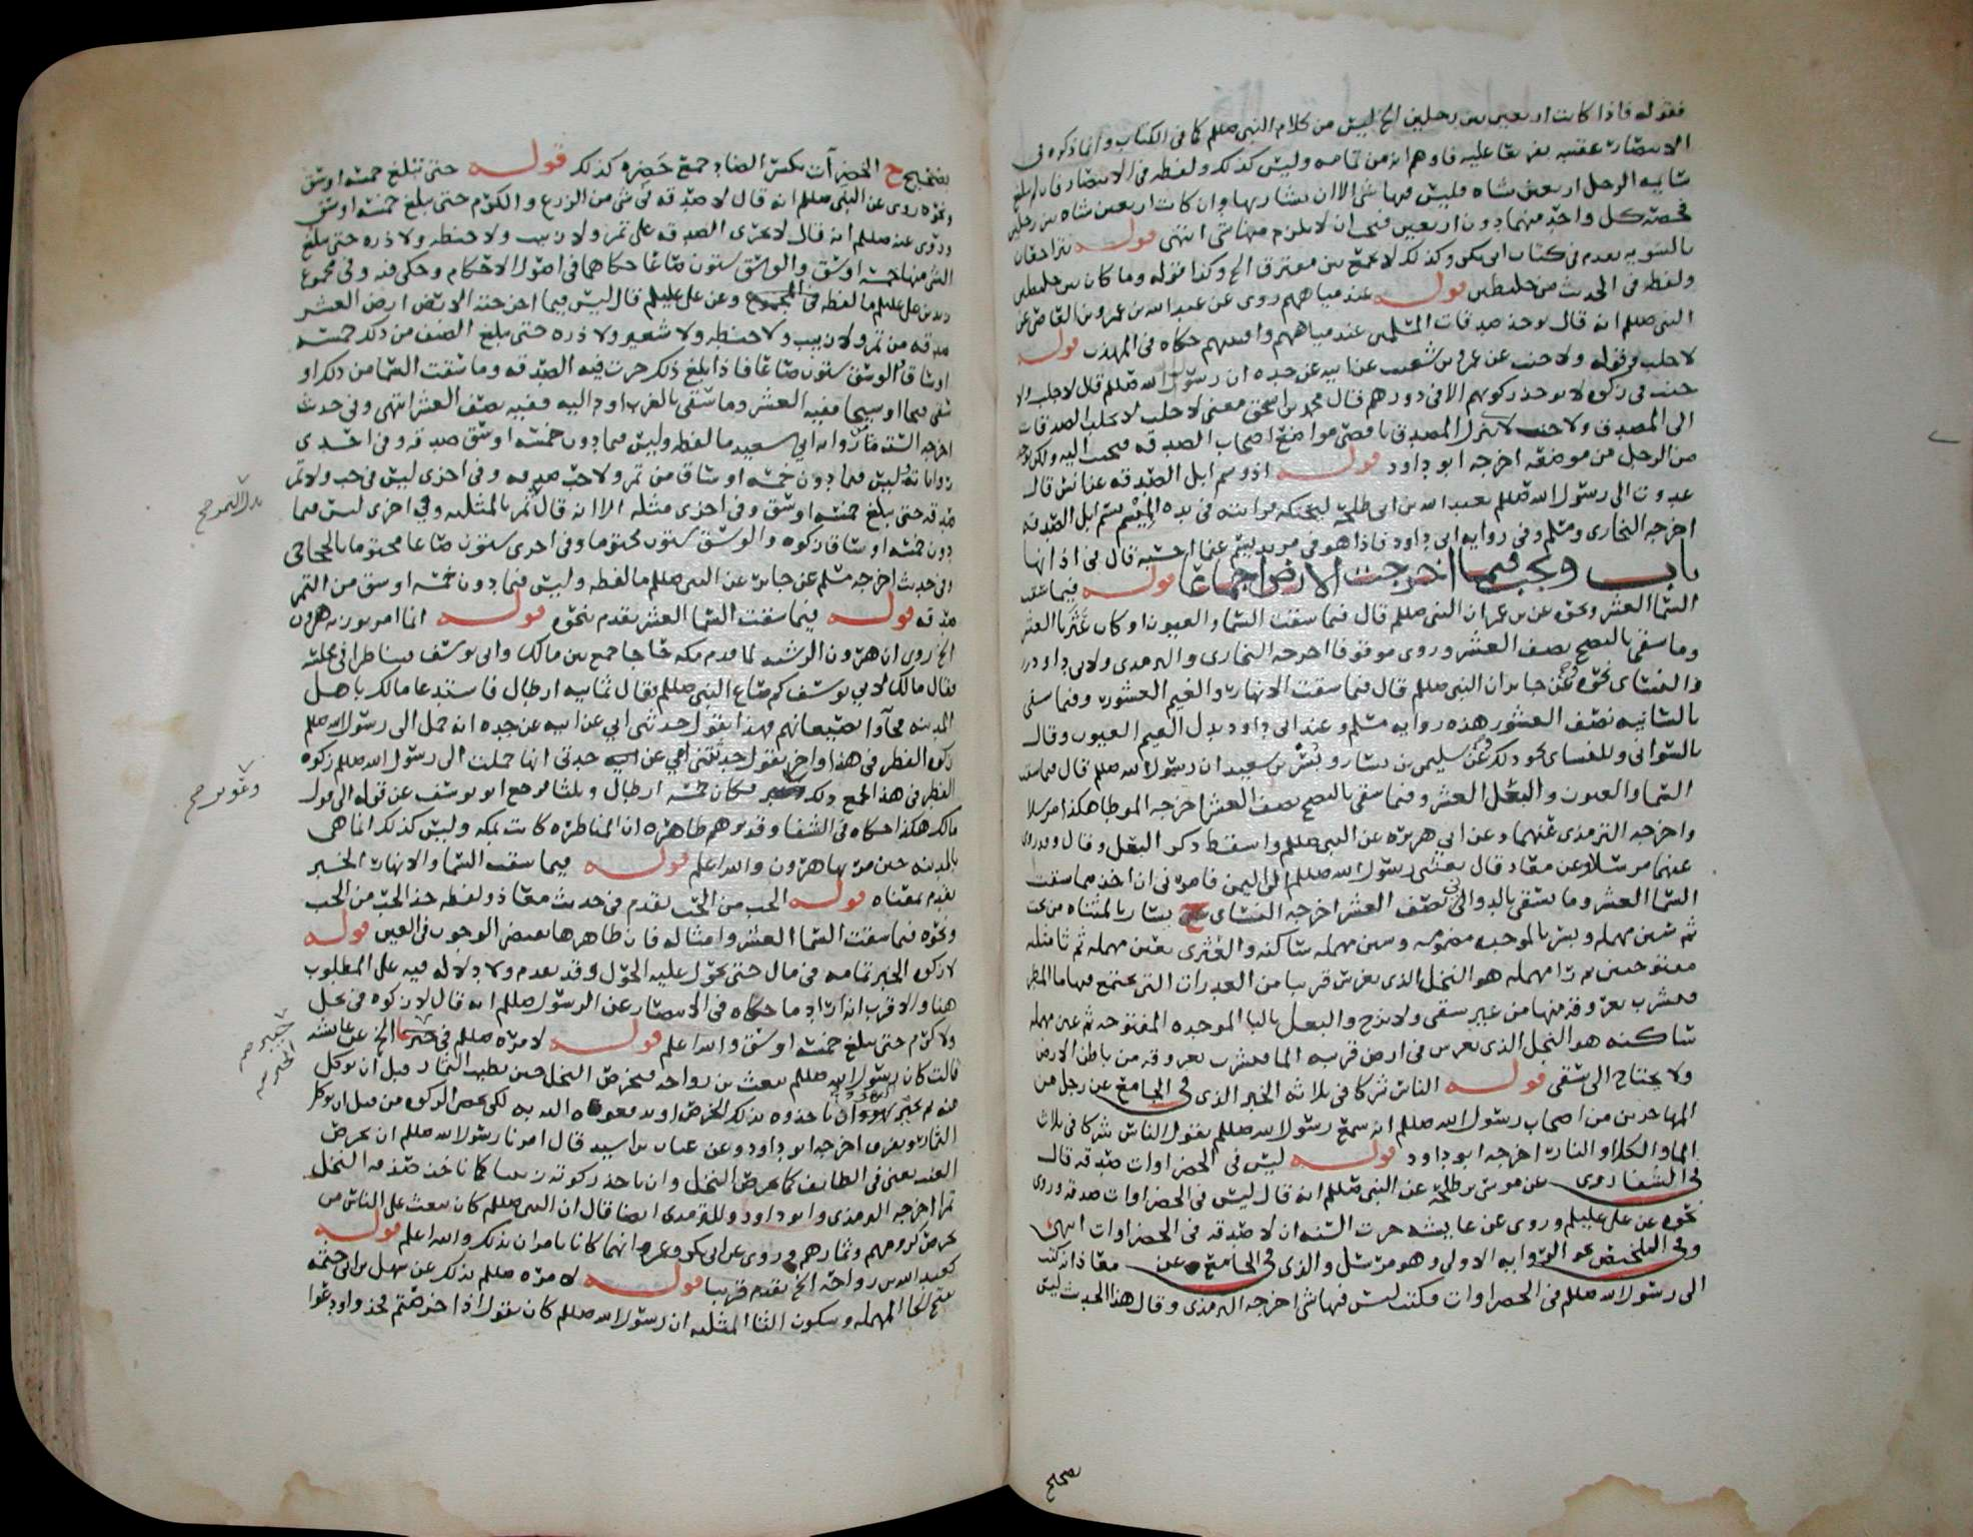 فقوله فاذا كانت اربعين بين رجلين الخ ليس من كلام النبي صللم كما في الكتاب وانما ذكره في
الانتصار عقيبه تفريعا عليه فاوهم انه من تمامه وليس كذلك ولفظه في الانتصار فان لم تبلغ
سايمه الرجل اربعين شاه فليس فيها شي الا ان يشا ربها وان كانت اربعين شاه بين رجلين
فحصة كل واحد منهما دون اربعين فيجب ان لا يلزم فيها شي انتهى قوله يتراجعان
بالسويه تقدم في كتاب ابي بكر وكذلك لا يجمع بين مفترق الخ وكذا قوله وما كان من خليطين
ولفظه في الحديث من خليطين قوله عند مياههم روى عن عبد الله بن عمرو بن العاص عن
النبي صللم انه قال توخذ صدقات المسلمين عند مياههم وافنيتهم حكاه في المهذب قوله
لا جلب وقوله ولا جنب عن عمرو بن شعيب عن ابيه عن جده ان رسول الله صللم قال لا جلب ولا
جنب في زكوه لا توخذ زكوتهم الا في دورهم قال محمد بن اسحق معنى لا جلب لا تجلب الصدقات
الى المصدق ولا جنب لا ينزل المصدق باقصى مواضع اصحاب الصدقه فتجنب اليه ولكن
من الرجل من موضعه اخرجه ابو داود قوله اذ وسم ابل الصدقه عن انس قال
غدوت الى رسول الله صللم بعبد الله بن ابي طلحة ليحنكه فوافيته في يده الميسم يسم ابل الصدقه
اخرجه البخاري ومسلم وفي روايه ابي داود فاذا هو في مربد يسم غنما احسبه قال في اذانها
باب وتجب فيما اخرجت الارض اجماعا قوله فيما سقت
السما العشر ونحوه عن بن عمر ان النبي صللم قال فيما سقت السما والعيون او كان عثريا العشر
وما سقي بالنضح نصف العشر وروى موقوفا اخرجه البخاري والترمذي ولابي داود
والنسائي نحوه وعن جابر ان النبي صللم قال فيما سقت الانهار والغيم العشور وفيما سقي
بالسانيه نصف العشور هذه روايه مسلم وعند ابي داود بدل الغيم العيون وقال
بالسواني وللنسائي نحو ذلك وعن سليمن بن يسار وبسر بن سعيد ان رسول الله صللم قال فيما سقت
السما والعيون والبعل العشر وفيما سقي بالنضح نصف العشر اخرجه الموطا هكذا مرسلا
واخرجه الترمذي عنهما وعن ابي هريره عن النبي صللم واسقط ذكر البعل وقال وقد روى
عنهما مرسلا وعن معاذ قال بعثني رسول الله صللم الى اليمن فامرني ان اخذ مما سقت
السما العشر وما سقي بالدوالي نصف العشر اخرجه النسائي ح يسار بالمثناه من تحت
ثم سين مهمله وبسر بالموحده مضمومه وسين مهمله ساكنه والعثري بعين مهمله ثم ثا مثلثه
مفتوحتين ثم را مهمله هو النخل الذي يغرس قريبا من الغدرات التي يجتمع فيها ما المطر
فيشرب بعروقه منها من غير سقي ولا نزح والبعل بالبا الموحده المفتوحه ثم عين مهمله
ساكنه هو النخل الذي يغرس في ارض قريبه الما فيشرب بعروقه من باطن الارض
ولا يحتاج الى سقي قوله الناس شركا في ثلاثه الخبر الذي في الجامع عن رجل من
المهاجرين من اصحاب رسول الله صللم انه سمع رسول الله صللم يقول الناس شركا في ثلاث
الما والكلا والنار اخرجه ابو داود قوله ليس في الخضراوات صدقه قال
في الشفا روى عن موسى بن طلحة عن النبي صللم انه قال ليس في الخضراوات صدقه وروى
نحوه عن علي عليلم وروى عن عايشه جرت السنه ان لا صدقه في الخضراوات انتهى
وفي التلخيص نحو الروايه الاولى وهو مرسل والذي في الجامع عن معاذ انه كتب
الى رسول الله صللم في الخضراوات فكتب ليس فيها شي اخرجه الترمذي وقال هذا الحديث ليس
بصحيح
بصحيح ح الخضرات بكسر الضاد جمع خضره كذلك قوله حتى تبلغ خمسه اوسق
ونحوه روى عن النبي صللم انه قال لا صدقه في شي من الزرع والكرم حتى يبلغ خمسه اوسق
وروى عنه صللم انه قال لا تجزى الصدقه على تمر ولا زبيب ولا حنطه ولا ذره حتى يبلغ
الشي منها خمسه اوسق والوسق ستون صاعا حكاهما في اصول الاحكام وحكى فيه وفي مجموع
زيد بن علي عليلم ما لفظه في المجموع وعن علي عليلم قال ليس فيما اخرجت الارض ارض العشر
صدقه من تمر ولا زبيب ولا حنطه ولا شعير ولا ذره حتى يبلغ الصنف من ذلك خمسه
اوساق والوسق ستون صاعا فاذا بلغ ذلك جرت فيه الصدقه وما سقت السما من ذلك او
سقي فيحا او سيحا ففيه العشر وما سقي بالغرب او داليه ففيه نصف العشر انتهى وفي حديث
اخرجه السته من روايه ابي سعيد ما لفظه وليس فيما دون خمسه اوسق صدقه وفي احدى
رواياته ليس فيما دون خمسه اوساق من تمر ولا حب صدقه وفي اخرى ليس في حب ولا تمر
صدقه حتى يبلغ خمسه اوسق وفي اخرى مثله الا انه قال ثمر بالمثلثه وفي اخرى ليس فيما
دون خمسه اوساق زكوه والوسق ستون مختوما وفي اخرى ستون صاعا مختوما بالحجاجي
وفي حديث اخرجه مسلم عن جابر عن النبي صللم ما لفظه وليس فيما دون خمسه اوسق من التمر
صدقه قوله فيما سقت السما العشر تقدم نحوه قوله انما امر به هرون
الخ روى ان هرون الرشيد لما قدم مكه حاجا جمع بين مالك وابي يوسف فتناظرا في مجلسه
فقال مالك لابي يوسف كم صاع النبي صللم فقال ثمانيه ارطال فاستدعا مالك باهل
المدينه فجآوا بصيعانهم فهذا يقول حدثني ابي عن ابيه عن جده انه حمل الى رسول الله صللم
زكوه الفطر في هذا واخر يقول حدثتني امي عن ابيه حدتي انها حملت الى رسول الله صللم زكوه
الفطر في هذا فكان خمسه ارطال وثلثا فرجع ابو يوسف عن قوله الى قول
مالك هكذا حكاه في الشفا وقد توهم ظاهره ان المناظره كانت بمكه وليس كذلك انما هي
بالمدينه حين مر بها هرون والله اعلم قوله فيما سقت السما والانهار الخبر
تقدم بمعناه قوله الحب من الحب تقدم في حديث معاذ ولفظه خذ الحب من الحب
ونحوه فيما سقت السما العشر وامثاله فان ظاهرها يقتضي الوجوب في العين قوله
لا زكوه الخبر تمامه في مال حتى يحول عليه الحول وقد تقدم ولا دلاله فيه على المطلوب
هنا والاقرب انه اراد ما حكاه في الانتصار عن الرسول صللم انه قال لا زكوه في نخل
ولا كرم حتى يبلغ خمسه اوسق والله اعلم قوله لامره صللم في خبر الخ عن عايشه
قالت كان رسول الله صللم يبعث بن رواحه فيخرص النخل حين تطيب الثمار قبل ان يوكل
منه ثم يخير يهود ان ياخذوه بذلك الخرص او يدفعوه اليه به لكي تحصى الزكوه من قبل ان توكل
الثمار وتفرق اخرجه ابو داود وعن عتاب بن اسيد قال امرنا رسول الله صللم ان نخرص
العنب يعني في الطايف كما نخرص النخل وان ناخذ زكوته زبيبا كما ناخذ صدقه النخل
تمرا اخرجه الترمذي وابو داود وللترمذي ايضا قال ان النبي صللم كان يبعث على الناس من
يخرص كرومهم وثمارهم وروى عن ابي بكر وعمر انهما كانا يامران بذلك والله اعلم قوله
كعبد الله بن رواحه الخ تقدم قريبا قوله لامره صللم بذلك عن سهل بن ابي حثمه
بفتح الحا المهمله وسكون الثا المثلثه ان رسول الله صللم كان يقول اذا خرصتم فخذوا ودعوا